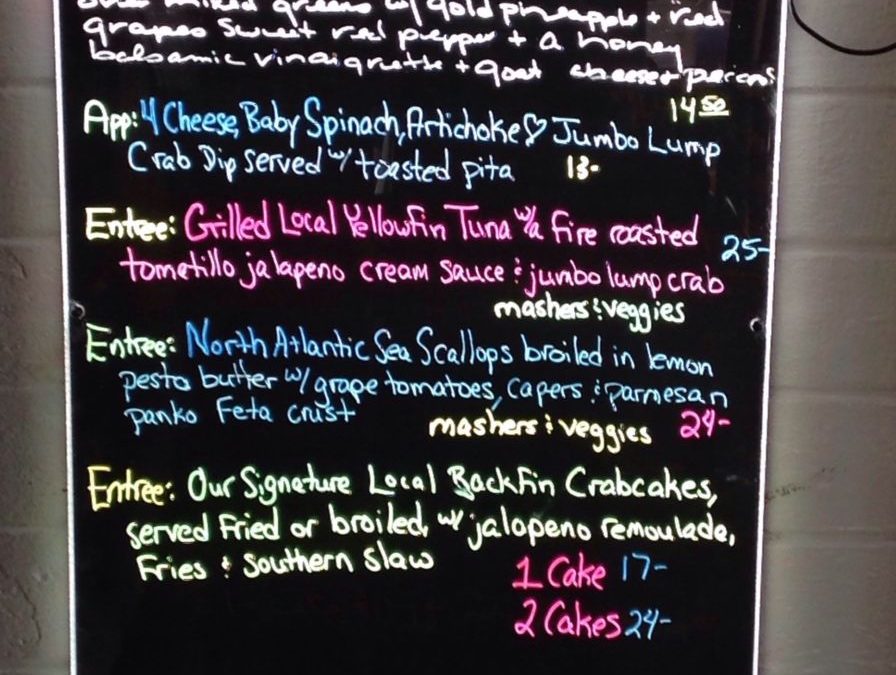 mixed greens w/ gold pineapple + red
grapes sweet red pepper + a honey
balsamic vinaigrette + goat cheese +
14 50
App: 4 Cheese, Baby Spinach, Artichoke & Jumbo Lump
Crab Dip served w/ toasted pita 13-
Entree: Grilled Local Yellowfin Tuna w/a fire roasted
25-
tomatillo jalapeno cream sauce & jumbo lump crab
mashers & veggies
Entree: North Atlantic Sea Scallops broiled in lemon
pesto butter w/ grape tomatoes, capers & parmesan
panko Feta crust
mashers & veggies 24-
Entree: Our Signature Local Backfin Crabcakes,
served Fried or broiled, w/ jalapeno remoulade,
Fries & Southern Slaw
1 Cake 17-
2 Cakes 24-